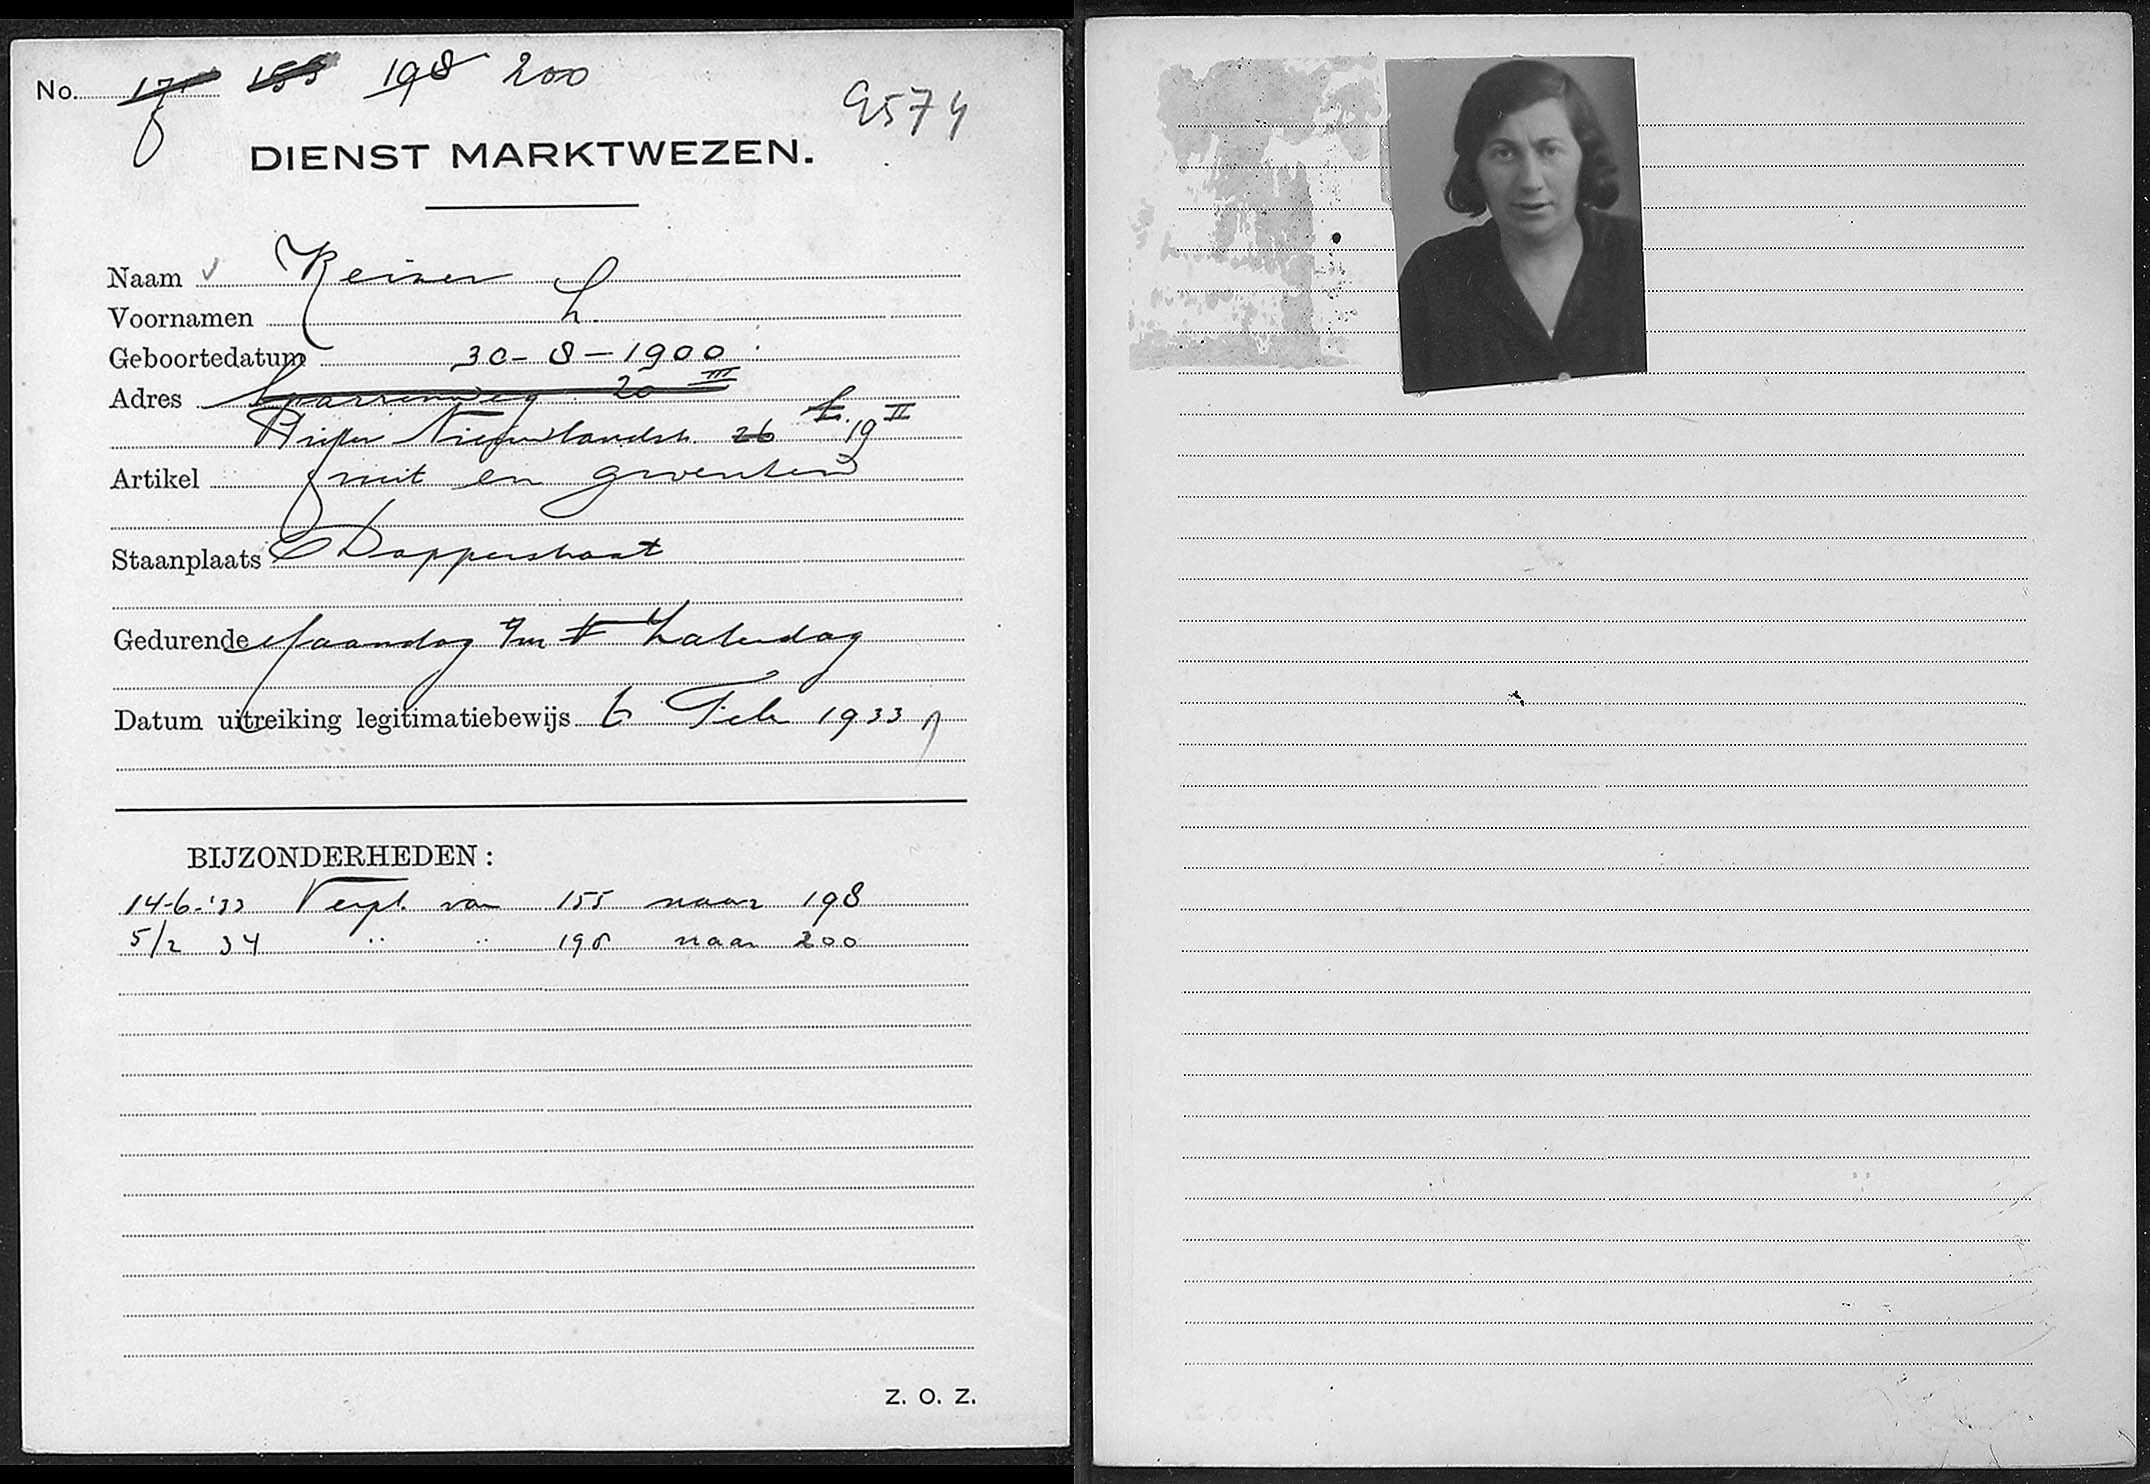 No. 155 198 200
9574
DIENST MARKTWEZEN.
Naam Keizer
Voornamen L.
Geboortedatum 30-8-1900
Adres Sparrenweg 20 III
Pieter Nieuwlandstr. 26 19 II
Artikel fruit en groenten
Staanplaats Dapperstraat
Gedurende Maandag t/m Zaterdag
Datum uitreiking legitimatiebewijs 6 Feb 1933
BIJZONDERHEDEN:
14-6-'33 Verpl. van 155 naar 198
5/2 34 " " 198 naar 200
Z. O. Z.